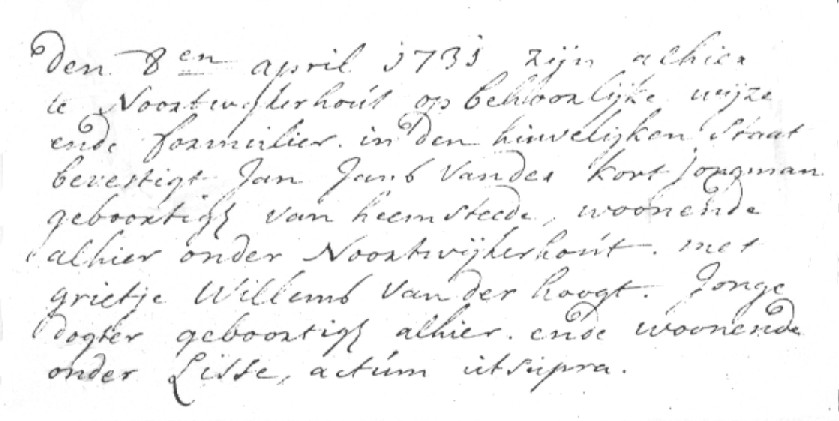 den 8en april 1731 zijn alhier
te Noortwijkerhout op behoorlijke wijze
ende formulier. in den huwelijken staat
bevestigt Jan Jans Vander kort jongman
geboortig van heemsteede, woonende
alhier onder Noortwijkerhout. met
grietje Willems van der hoogt. Jonge
dogter geboortig alhier. ende woonende
onder Lisse, actum utsupra.